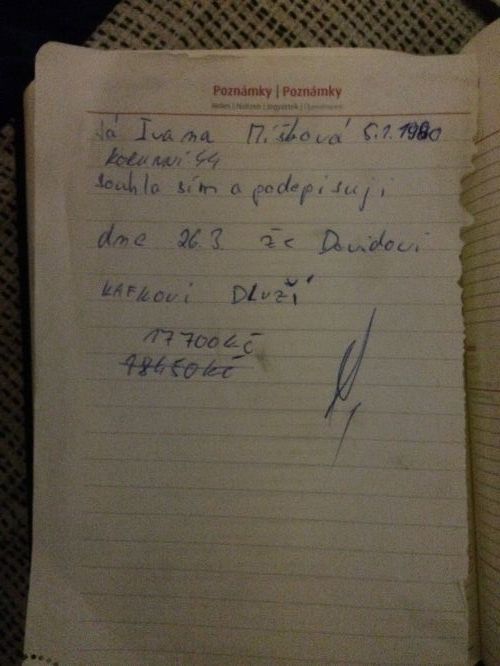 Poznámky | Poznámky
Já Ivana Mišková 5.1.1980
KORUNNÍ 44
souhla sím a podepisuji
dne 26.3. že Davidovi
KAFKOVI DLUŽÍ
17700Kč
18450Kč